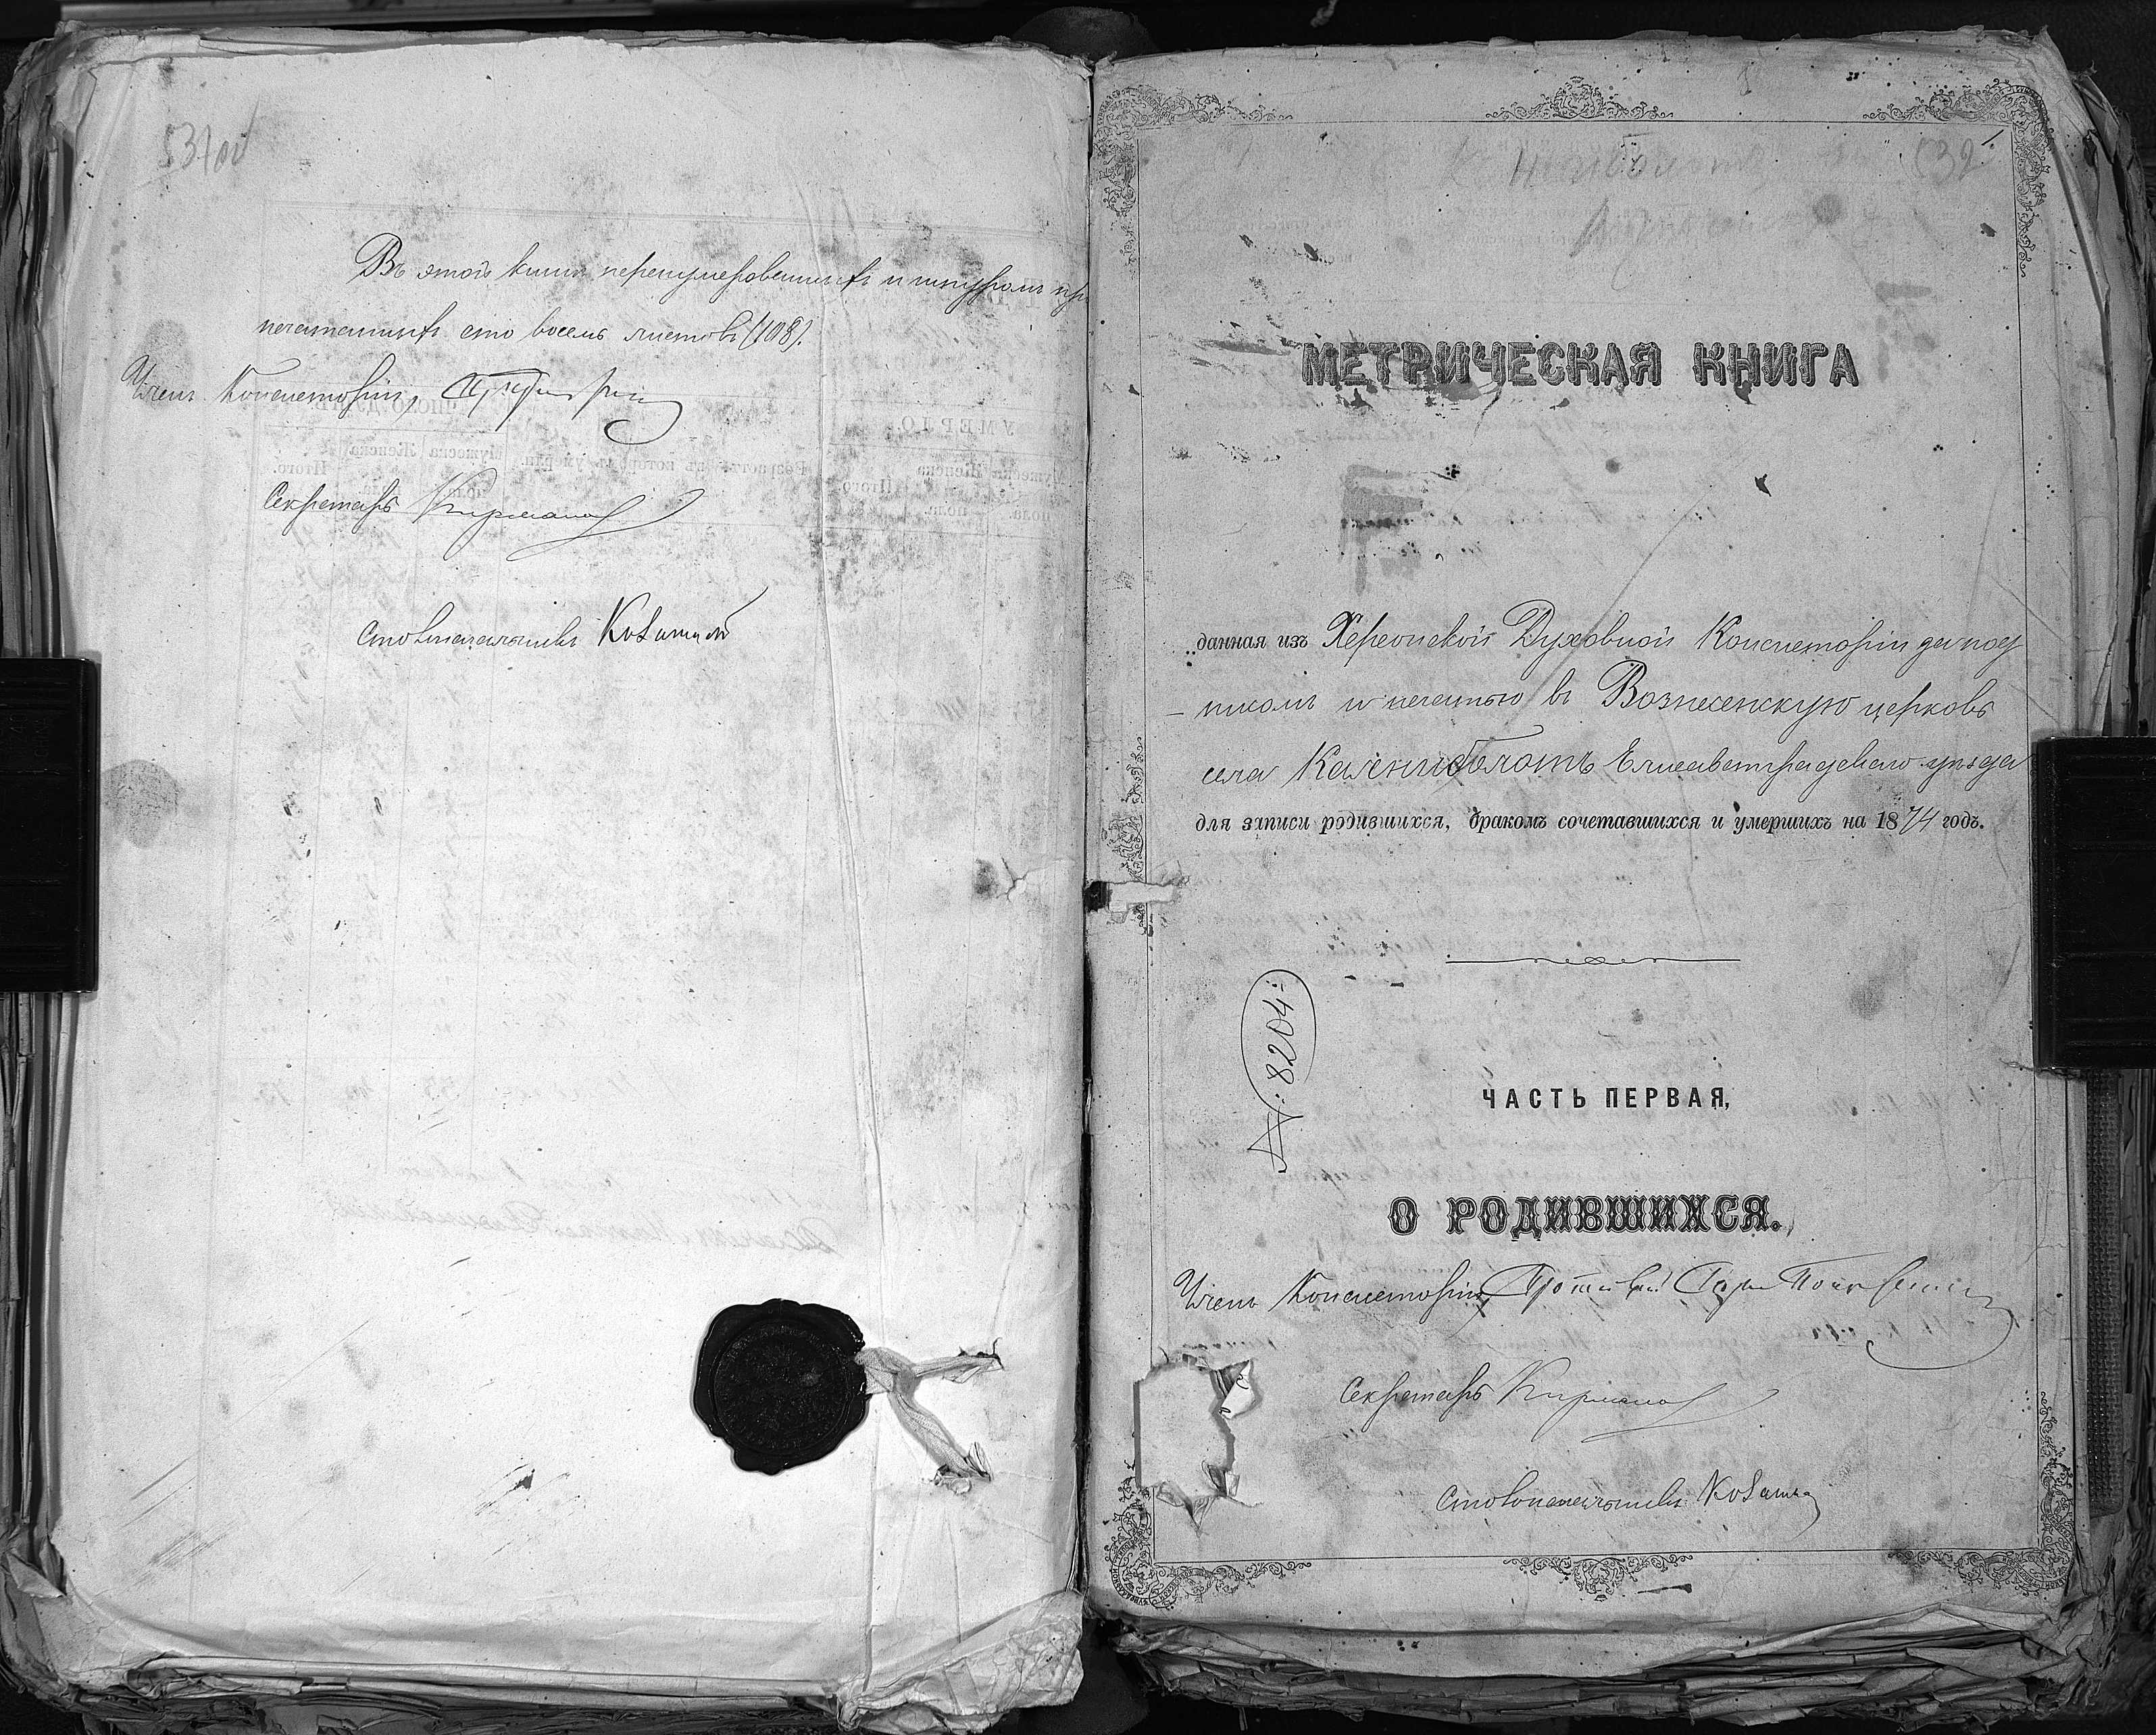 Въ этой книгѣ перенумерованныхъ и шнуромъ при
печатанныхъ сто восемь листовъ (108).
Членъ Консисторіи,
Секретарь
Столоначальникъ
32
МЕТРИЧЕСКАЯ КНИГА
данная изъ Херсонской Духовной Консисторіи за под
писомъ и печатью въ Вознесенскую церковь
села Калениболотъ Елисаветградскаго уѣзда
для записи родившихся, бракомъ сочетавшихся и умершихъ на 1874 годъ.
№: 8204
ЧАСТЬ ПЕРВАЯ,
О РОДИВШИХСЯ.
Членъ Консисторіи,
Секретарь
Столоначальникъ